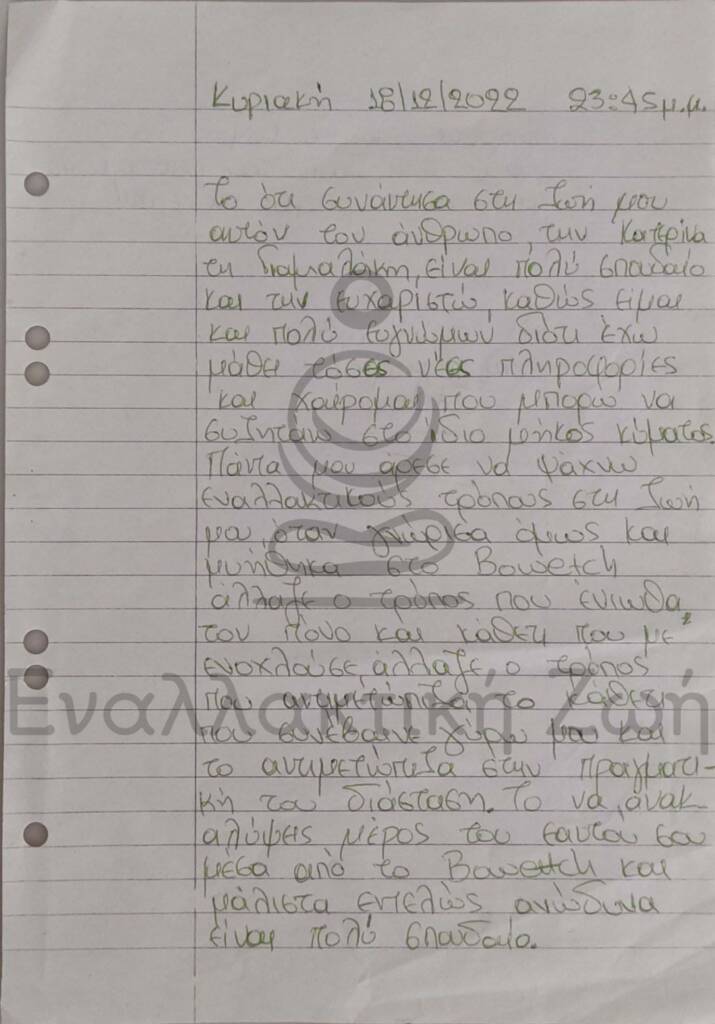 Κυριακή 18/12/2022 23:45μ.μ.
Το ότι συνάντησα στη ζωή μου
αυτόν τον άνθρωπο, την Κατερίνα
τη Διαμαλάκη, είναι πολύ σπουδαίο
και την ευχαριστώ, καθώς είμαι
και πολύ ευγνώμων διότι έχω
μάθει τόσες νέες πληροφορίες
και χαίρομαι που μπορώ να
συζητάω στο ίδιο μήκος κύματος.
Πάντα μου άρεσε να ψάχνω
εναλλακτικούς τρόπους στη ζωή
μου, όταν γνώρισα όμως και
μυήθηκα στο Bowetch
άλλαξε ο τρόπος που ένιωθα
τον πόνο και κάθετι που με
ενοχλούσε, άλλαξε ο τρόπος
που αντιμετώπιζα το κάθετι
Εναλλακτική Ζωή
που συνέβαινε γύρω μου και
το αντιμετώπιζα στην πραγματι-
κή του διάσταση. Το να ανακ-
αλύψεις μέρος του εαυτού σου
μέσα από το Bowetch και
μάλιστα εντελώς ανώδυνα
είναι πολύ σπουδαίο.